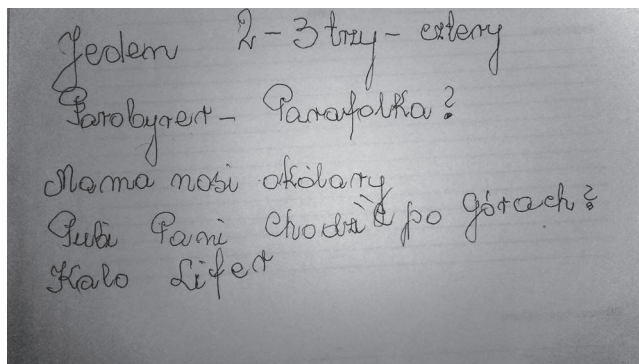 Jedem 2-3 trzy-cztery
Parobyrer- Parafolka?
Mama nosi okólary
Pubi Pani Chodzić po górach?
Kalo Lifer